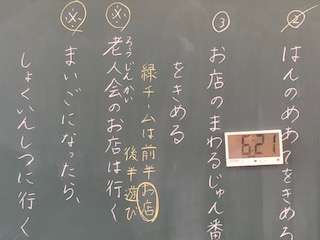 ② はんのめあてをきめる
③ お店のまわるじゅん番
をきめる
緑チームは前半お店
後半遊び
※ 老人会のお店は行く
ろうじんかい
※ まいごになったら、
しょくいんしつに行く
6:21